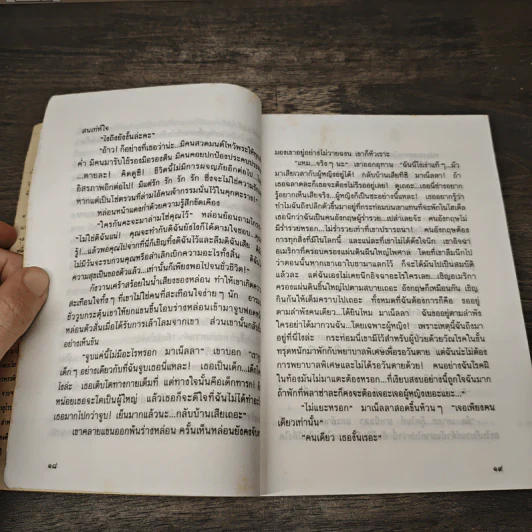 สนเท่ห์ใจ
"ไงถึงยังงั้นล่ะคะ"
"อ้าว! ก็อย่างที่เธอว่าน่ะ...มีคนสวดมนต์ไหว้พระให้ทุก
ค่ำ มีคนมารับใช้รองมือรองตีน มีคนคอยปกป้องประคบประหงม
...ตายละ! คิดดูซี! ชีวิตนี้ไม่มีการผจญภัยอีกต่อไป...ไม่มี
อิสรภาพอีกต่อไป! มีแต่รัก รัก รัก รัก ซึ่งจะไม่ใช่ความรัก
หากแต่เป็นโซ่ตรวนที่ล่ามไอ้คนเจ้ากรรมนั้นไว้ในคุกตะราง!"
หล่อนหน้าแดงก่ำด้วยความรู้สึกขัดเคือง
"ใครกันคะจะมาล่ามโซ่คุณไว้" หล่อนย้อนถามไก
"ไม่ใช่ดิฉันแน่! คุณจะทำกับดิฉันยังไงก็ได้ตามใจชอบ...คุณ
รู้!...แล้วพอคุณไปจากที่นี่ก็เชิญทิ้งดิฉันไว้และลืมดิฉันเสีย
ไม่มีวันจะรบกวนคุณหรือล่าเลิกเบิกความอะไรทั้งสิ้น ดิฉัน
ความสุขเป็นของตัวแล้ว...เท่านั้นก็เพียงพอไปจนชั่วชีวิต!"
กังวานเศร้าสร้อยในน้ำเสียงของหล่อน ทำให้เขาเกิดความ
สะเทือนใจทั้ง ๆ ที่เขาไม่ใช่คนที่สะเทือนใจง่ายๆ นัก
ชั่ววูบกระตุ้นเขาให้ยกแขนขึ้นโอบร่างหล่อนเข้ามาจูบ
หล่อนตัวสั่นเมื่อได้รับการเล้าโลมจากเขา ส่วนเขานั้นกลับ
อย่างเห็นขัน
"จูบแค่นี้ไม่มีอะไรหรอก มาเน็ลลา!" เขาบอก
เด็กๆ อย่างเดียวกับที่ฉันจูบเธอนี่แหละ! เธอเป็นเด็ก...เด็ก
ไงล่ะ เธอเติบโตทางกายเต็มที่ แต่ทางใจนั้นคือเด็กทารก!
หน่อยเธอจะโตเป็นผู้ใหญ่ แล้วเธอก็จะดีใจที่ฉันไม่ได้ทำอะไร
เธอมากไปกว่าจูบ! เย็นมากแล้วนะ...กลับบ้านเสียเถอะ"
เขาคลายแขนออกพ้นร่างหล่อน ครั้นเห็นหล่อนยังคง
๑๘
มองเขาอยู่อย่างไม่วายฉงน เขาก็หัวเราะ
"แหม...จริงๆ นะ" เขาออกอุทาน "ฉันนี่โง่เง่าแท้ๆ...มัว
มาเสียเวลากับผู้หญิงอยู่ได้! กลับบ้านเสียทีซิ มาเน็ลลา! ถ้า
เธอฉลาดละก็เธอจะต้องไม่รีรออยู่เลย! ดูเถอะ...เธอนี่ช่างอยาก
รู้อยากเห็นเสียจริง...ผู้หญิงก็เป็นซะอย่างนี้แหละ! เธออยากรู้ว่า
ทำไมฉันถึงปลีกตัวขึ้นมาอยู่ที่กระท่อมบนเขาแทนที่จะพักในโฮเต็ล
เธอนึกว่าฉันเป็นคนอังกฤษผู้ร่ำรวย...เปล่าเลยจ้ะ คนอังกฤษไม่
มีร่ำรวยหรอก...ไม่ร่ำรวยเท่าที่เขาปรารถนา! คนอังกฤษต้อง
การทุกสิ่งที่มีในโลกนี้ และแน่ละที่เขาไม่ได้ดังใจนึก เขาอิจฉา
อเมริกาที่ครอบครองแผ่นดินผืนใหญ่ไพศาล โดยที่เขาลืมนึกไป
ว่าตอนนั้นหากเขาเอาใบชามาแลกไว้ ก็จะได้มันไปเป็นสมบัติ
แล้วละ แต่ฉันเองไม่เคยนึกอิจฉาอะไรใครเลย...เชิญอเมริกา
ครองแผ่นดินผืนใหญ่ไปตามสบายเถอะ อังกฤษก็เหมือนกัน เชิญ
กินกันให้เต็มคราบไปเถอะ ทั้งหมดที่ฉันต้องการก็คือ ขออยู่
ตามลำพังคนเดียว...ได้ยินไหม มาเน็ลลา! ฉันขออยู่ตามลำพัง
ใครอย่าได้มากวนฉัน...โดยเฉพาะผู้หญิง! เพราะเหตุนี้ฉันถึงมา
อยู่ที่นี่ไงล่ะ กระท่อมนี้เขามีไว้สำหรับผู้ป่วยด้วยวัณโรคในขั้น
ทรุดหนักมาพักกับพยาบาลพิเศษเพื่อรอวันตาย แต่ฉันน่ะไม่ต้อง
การพยาบาลพิเศษและไม่ได้รอวันตายด้วย! คนอย่างฉันโรคมิ
ในท้องมันไม่มาแตะต้องหรอก...ที่เงียบสงบอย่างนี้ถูกใจฉันมาก
ถ้าพักที่พลาซ่าละก็คงจะต้องเจอะเจอผู้หญิงเยอะแยะ..."
"ไม่เยอะหรอก" มาเน็ลลาสอดขึ้นห้วนๆ "เจอเพียงคน
เดียวเท่านั้น"
"คนเดียว เธองั้นเรอะ"
๑๙